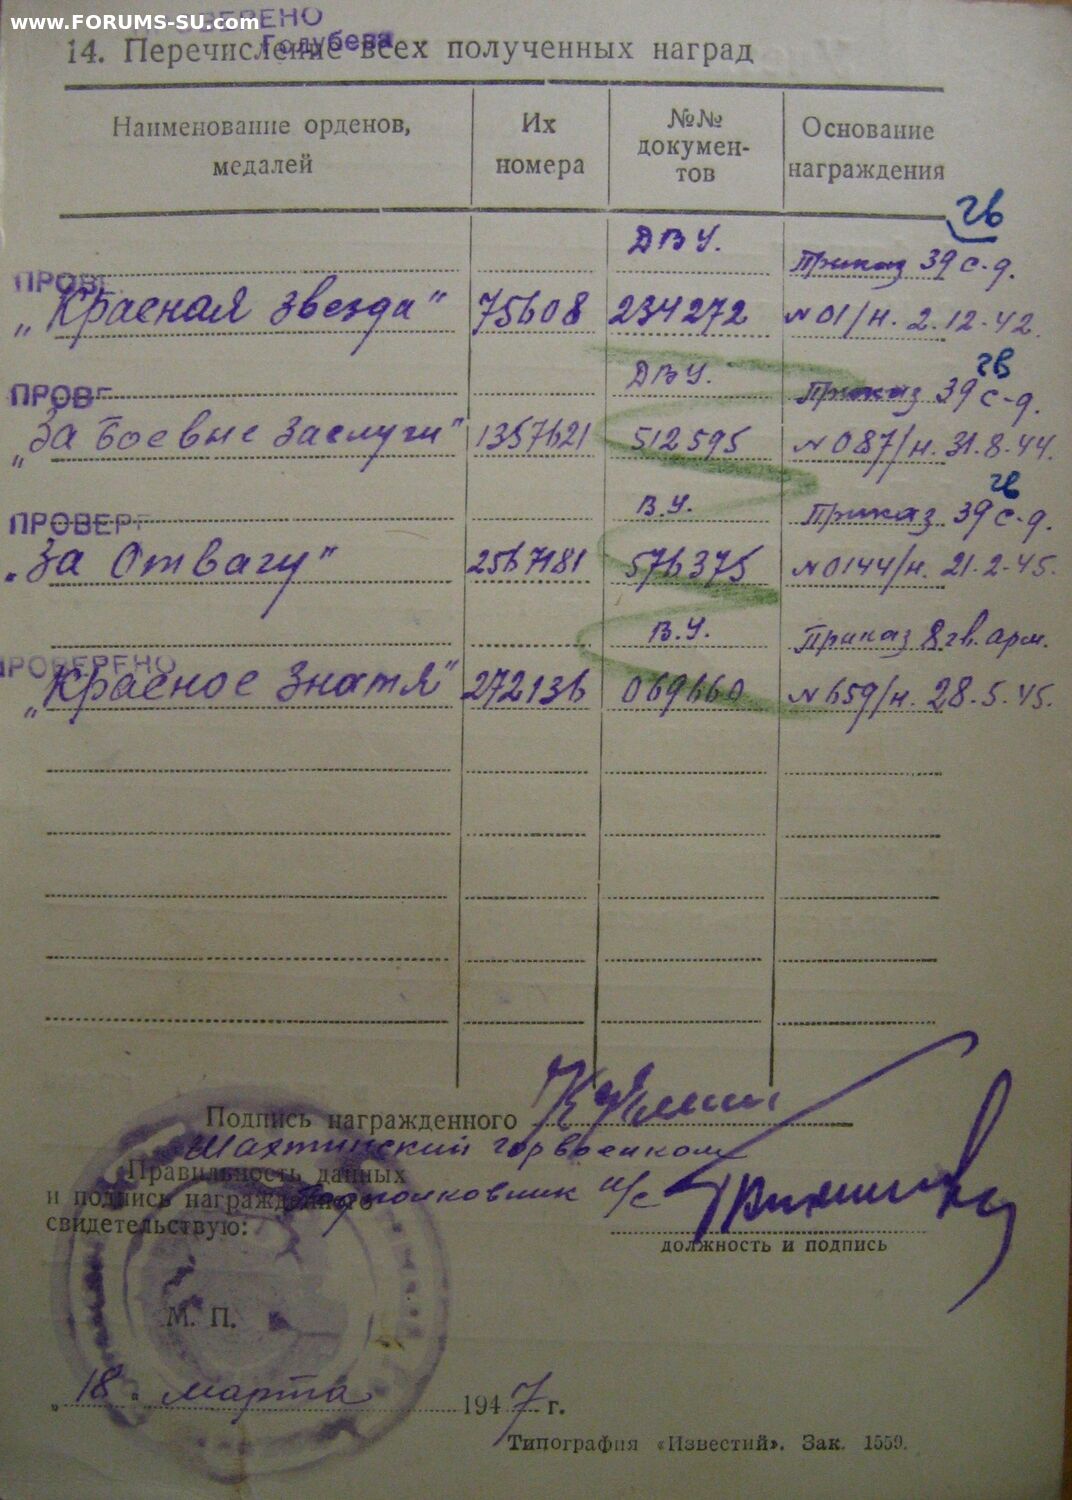 www.FORUMS-SU.com
ПРОВЕРЕНО
Голубева
14. Перечисление всех полученных наград
Наименование орденов, медалей
Их номера
№№ докумен-тов
Основание награждения
гв
ДВУ. Приказ 39 с-д.
ПРОВЕ
„Красная звезда" 75608 234272 №01/н. 2.12.42.
гв
ДВУ. Приказ 39 с-д.
ПРОВЕ
„За Боевые Заслуги" 1357621 512595 №087/н. 31.8.44.
гв
В.У. Приказ 39 с-д.
ПРОВЕРЕ
„За Отвагу" 2567181 576375 №0144/н. 21.2.45.
В.У. Приказ 8 гв. арм.
ПРОВЕРЕНО
„Красное Знамя" 272136 069660 №659/н. 28.5.45.
Подпись награжденного
Шахтинский горвоенком
Правильность данных
и подпись награжденного
Подполковник и/с
свидетельствую:
должность и подпись
М. П.
„18" марта 1947 г.
Типография «Известий». Зак. 1559.